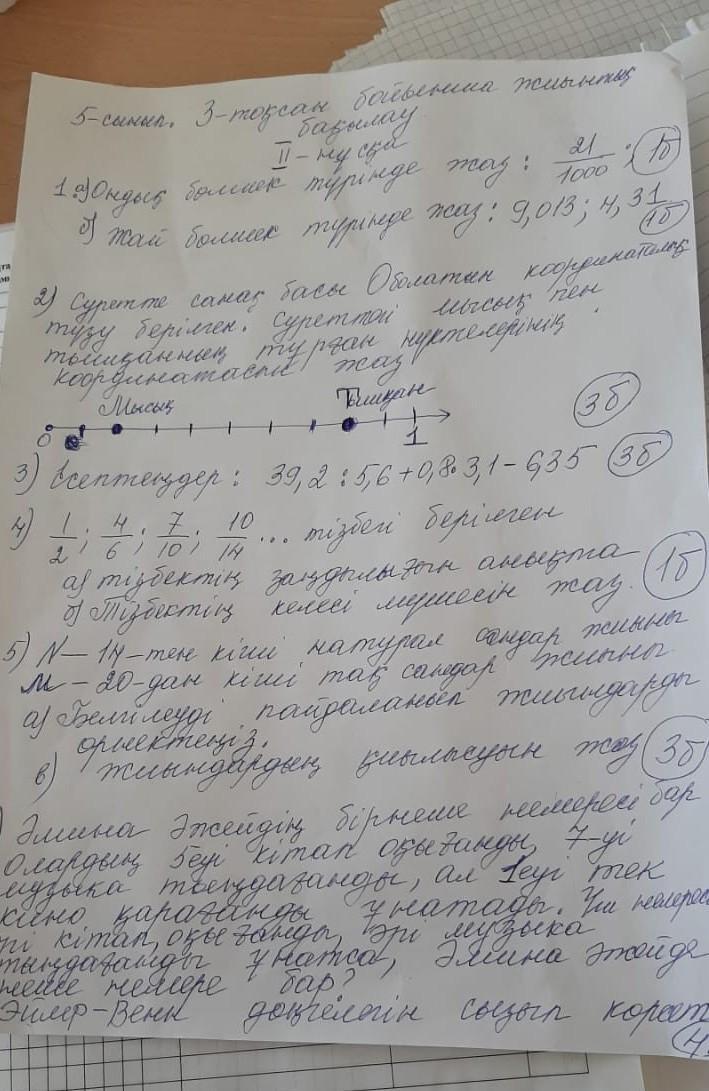 5-сынып. 3-тоқсан бойынша жиынтық
бақылау
II - нұсқа
1. а) Ондық бөлшек түрінде жаз: 21/1000; 1б
б) Жай бөлшек түрінде жаз: 9,013; 4,31 1б
2) Суретте санақ басы О болатын координаталық
түзу берілген. Суреттегі мысық пен
тышқанның тұрған нүктелерінің
координатасын жаз 3б
Мысық Тышқан
0 1
3) Есептеңдер: 39,2 : 5,6 + 0,8 · 3,1 - 6,35 3б
4) 1/2; 4/6; 7/10; 10/14 ... тізбегі берілген
а) тізбектің заңдылығын анықта
б) Тізбектің келесі мүшесін жаз. 1б
5) N – 14-тен кіші натурал сандар жиыны
M – 20-дан кіші тақ сандар жиыны
а) Белгілеуді пайдаланып жиындарды
өрнектеңіз.
в) жиындардың қиылысуын жаз 3б
) Әмина әжейдің бірнеше немересі бар
Олардың 5еуі кітап оқығанды, 7-уі
музыка тыңдағанды, ал 1еуі тек
кино қарағанды ұнатады. Үш немересі
әрі кітап оқығанды, әрі музыка
тыңдағанды ұнатса, Әмина әжейде
неше немере бар?
Эйлер-Венн дөңгелегін сызып көрсет
4